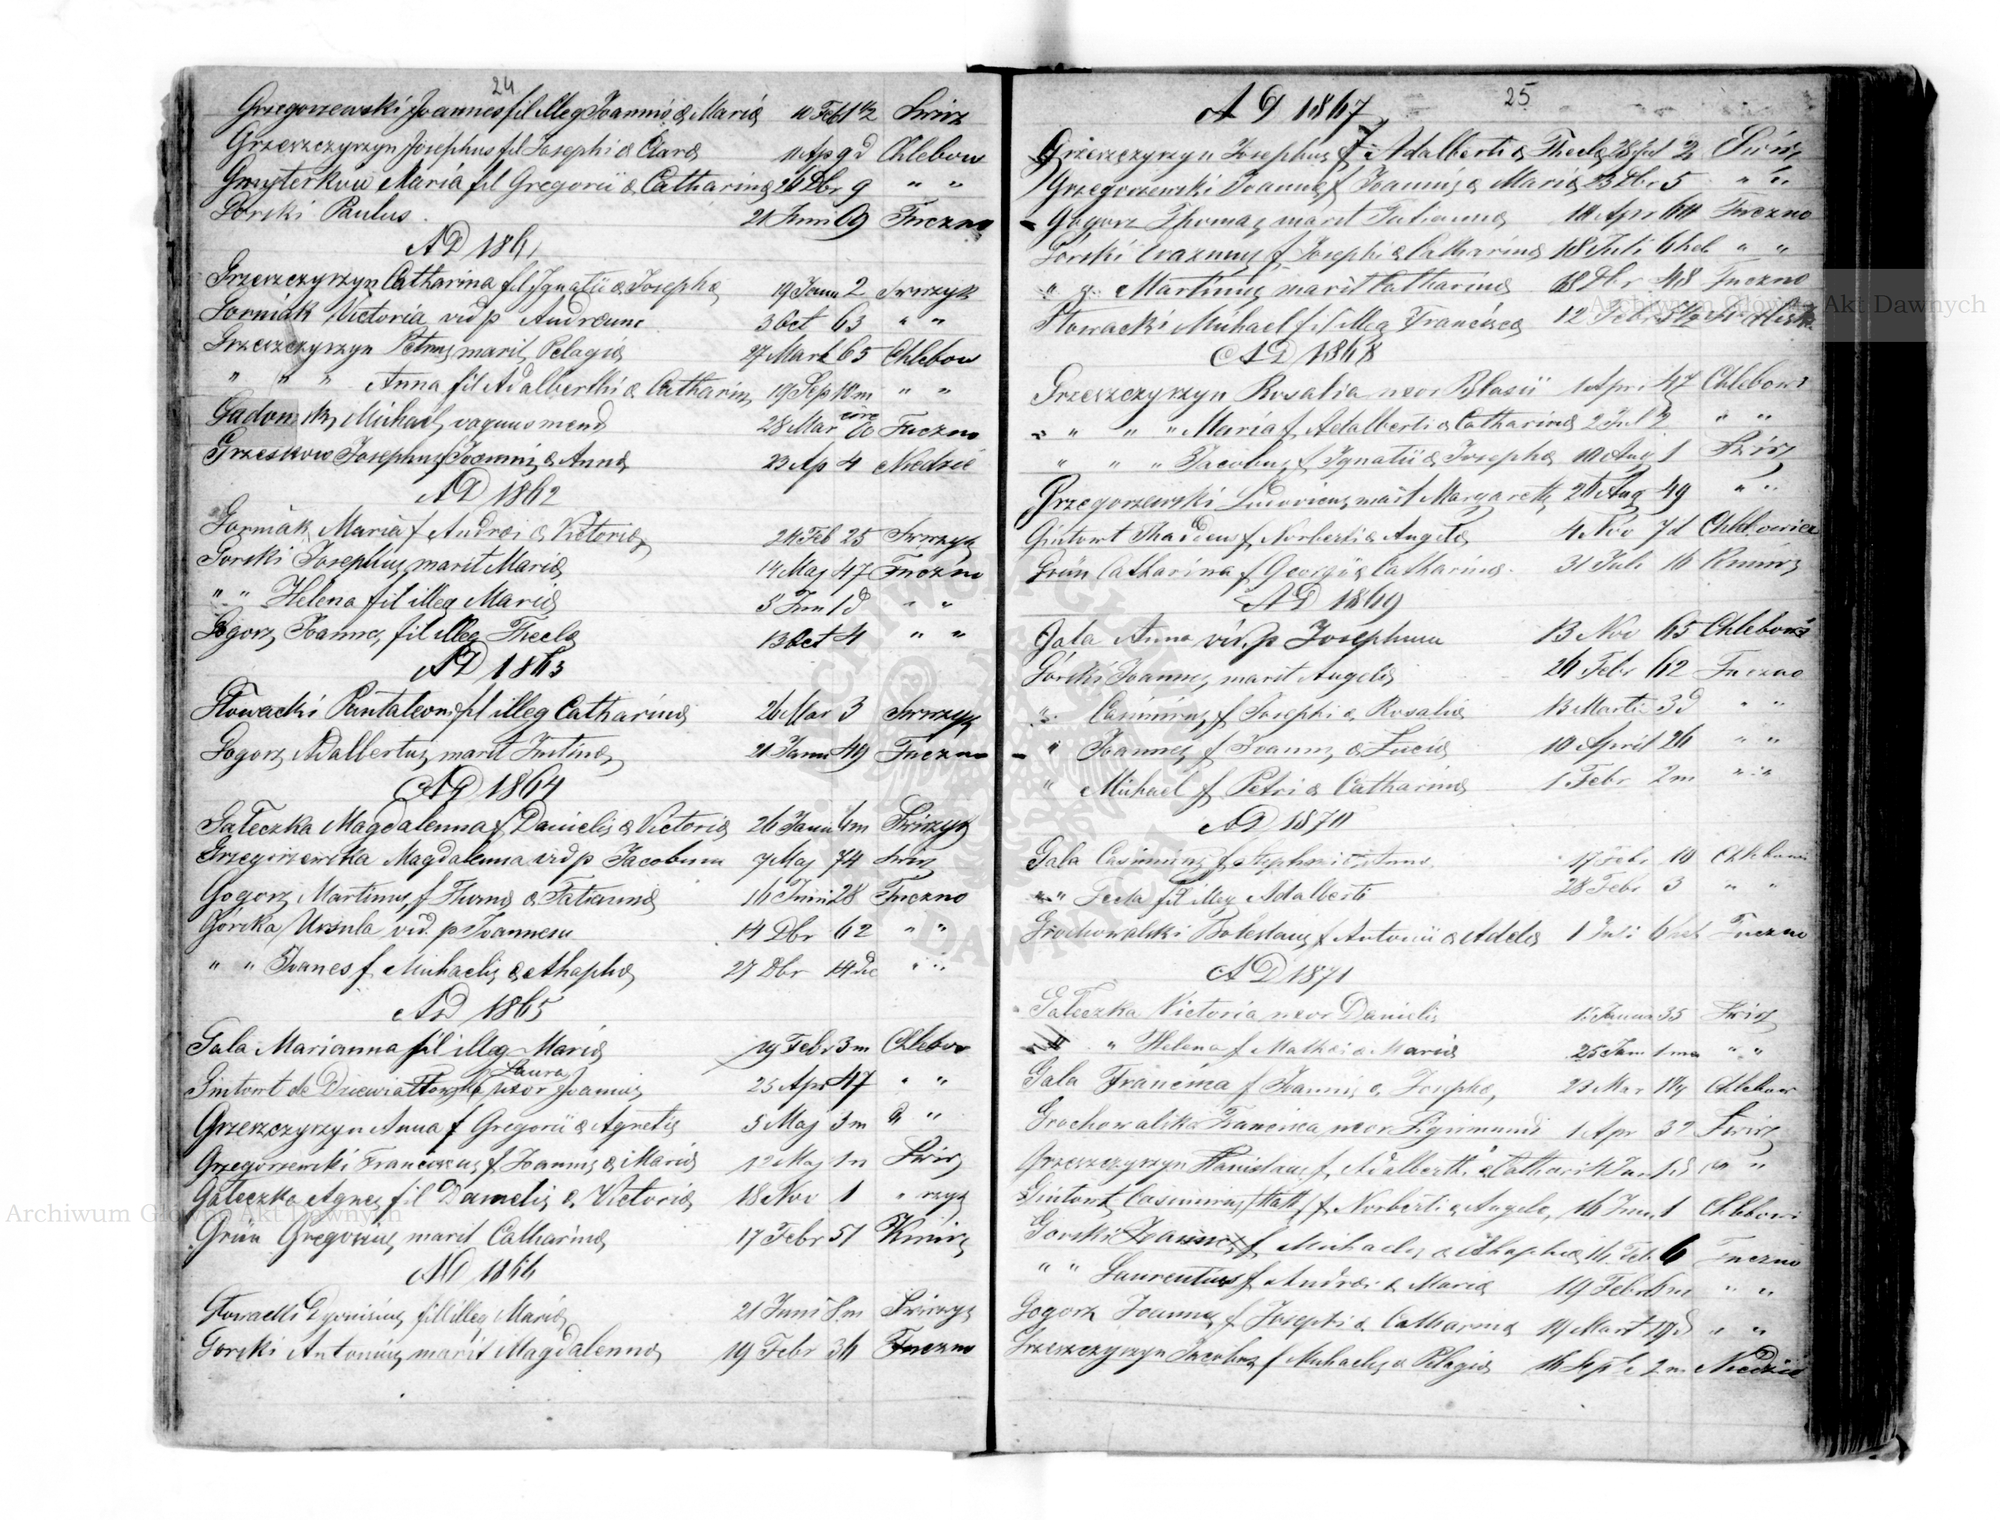 24
Grzegorzewski Joannes fil illeg Joannis & Maria 10 Feb 1 1/2 Swirz
Grzeszczyrzyn Josephus fil Josephi & Clara 11 Ap 9 d Chlebow
Maria fil Gregorii & Catharina 26 Dbr 9 " "
Gorski Paulus. 21 Juni 69 Tuczno
AD 1861
Grzeszczyrzyn Catharina fil Ignatii & Josepha 19 Janu 2 Swirzyk
Gorniak Victoria vid p Andream 3 Oct 63 " "
Grzeszczyrzyn Petrus marit Pelagia 27 Mart 65 Chlebow
" " " Anna fil Adalberthi & Catharin 19 Sep 10 m " "
Michael 28 Mar circ 60 Tuczno
Grzeskow Josephus f Joannis & Anna 23 Ap 4 Niedzic
AD 1862
Gorniak Maria f Andrei & Victoria 24 Feb 25 Swirzyk
Gorski Josephus marit Maria 14 Maj 47 Tuczno
" " Helena fil illeg Maria 5 Jun 1 d " "
Gogorz Joannes fil illeg Thecla 13 Oct 4 " "
AD 1863
Głowacki Pantaleon fil illeg Catharina 26 Mar 3 Swirzyk
Gogorz Adalbertus marit Justina 21 Janu 49 Tuczno
AD 1864
Gałeczka Magdalenna f Danielis & Victoria 26 Janu 6 m Swirzyk
Grzegorzewska Magdalenna vid p Jacobum 7 Maj 74 Swirz
Gogorz Martinus f Thoma & Tatianna 16 Juni 28 Tuczno
Górska Ursula vid. p Joannem 14 Dbr 62 " "
" " Joanes f Michaelis & Ahaphia 27 Dbr 14 die " "
AD 1865
Gala Marianna fil illeg Maria 19 Febr 3 m Chlebow
Laura
Gintowt de Dziewiałtowska uxor Joannis 25 Apr 47 " "
Grzeszczyrzyn Anna f Gregorii & Agnetis 5 Maj 3 m " "
Grzegorzewski Franciscus f Joannis & Maria 12 Maj 1 Swirz
Gałeczka Agnes fil Danielis & Victoria 18 Nov 1 " rzyk
Grün Gregorius marit Catharina 17 Febr 51 Kimirz
AD 1866
Głowacki Dyonisius fil illeg Maria 21 Juni 8 m Swirzyk
Gorski Antonius marit Magdalenna 19 Febr 36 Tuczno
25
AD 1867
Grzeszczyrzyn Josephus f Adalberti & Thecla 28 Jul 2 Swirz
Grzegorzewski Joannes f Joannis & Maria 23 Dbr 5 " "
Gogorz Thomas marit Tatianna 14 Apr 60 Tuczno
Górski Erazmus f Josephi & Catharina 18 Juli 6 heb " "
" " Martinus marit Catharina 18 Dbr 48 Tuczno
Głowacki Michael fil illeg Francisca 12 Febr
AD 1868
Grzeszczyrzyn Rosalia uxor Blasii 1 Apri 47 Chlebowi
" " " Maria f Adalberti & Catharina 2 Jul 2 " "
" " " Jacobus f Ignatii & Josepha 10 Aug 1 Swirz
Grzegorzewski Ludovicus marit Margaretha 26 Aug 49 " "
Gintowt Thaddeus f Norberti & Angela 4 Nov 7 d Chlebowice
Grün Catharina f Georgii & Catharina. 31 Juli 16 Kimirz
AD 1869
Gala Anna vid. p Josephum 13 Nov 65 Chlebowi
Górski Joannes marit Angelia 26 Febr 62 Tuczno
" Casimirus f Josephi & Rosalia 13 Martii 3 d " "
" Joannes f Joannis & Lucia 10 April 26 " "
" Michael f Petri & Catharina 1 Febr 2 m " "
AD 1870
Gala Casimirus f Stephani & Anna 17 Febr 10 Chlebowi
" " Tecla fil illeg Adalberti 28 Febr 3 " "
Grochowalski Boleslaus f Antonii & Adela 1 Juli 6 heb Tuczno
AD 1871
Gałeczka Victoria uxor Danielis Janua 35 Swirz
" Helena f Mathei & Maria 25 Jan 1 " "
Gala Francisca f Joannis & Josepha 23 Mar Chlebow
Grochowalska Francisca uxor Sigismundi 1 Apr 32 Swirz
Grzeszczyrzyn Stanislaus f Adalberti & Cathari " "
Gintowt Casimirus f Norberti & Angela 16 Jun 1 Chlebowi
Gorski Joannes f Michaelis & Ahaphia 16 Feb 6 Tuczno
" " Laurentius f Andrei & Maria 19 Febr " "
Gogorz Joannes f Josephi & Catharina 19 Mart 19 d " "
Grzeszczyrzyn Jacobus f Michaelis & Pelagia 16 Sept 2 m Niedzic
Archiwum Główne Akt Dawnych
Archiwum Główne Akt Dawnych